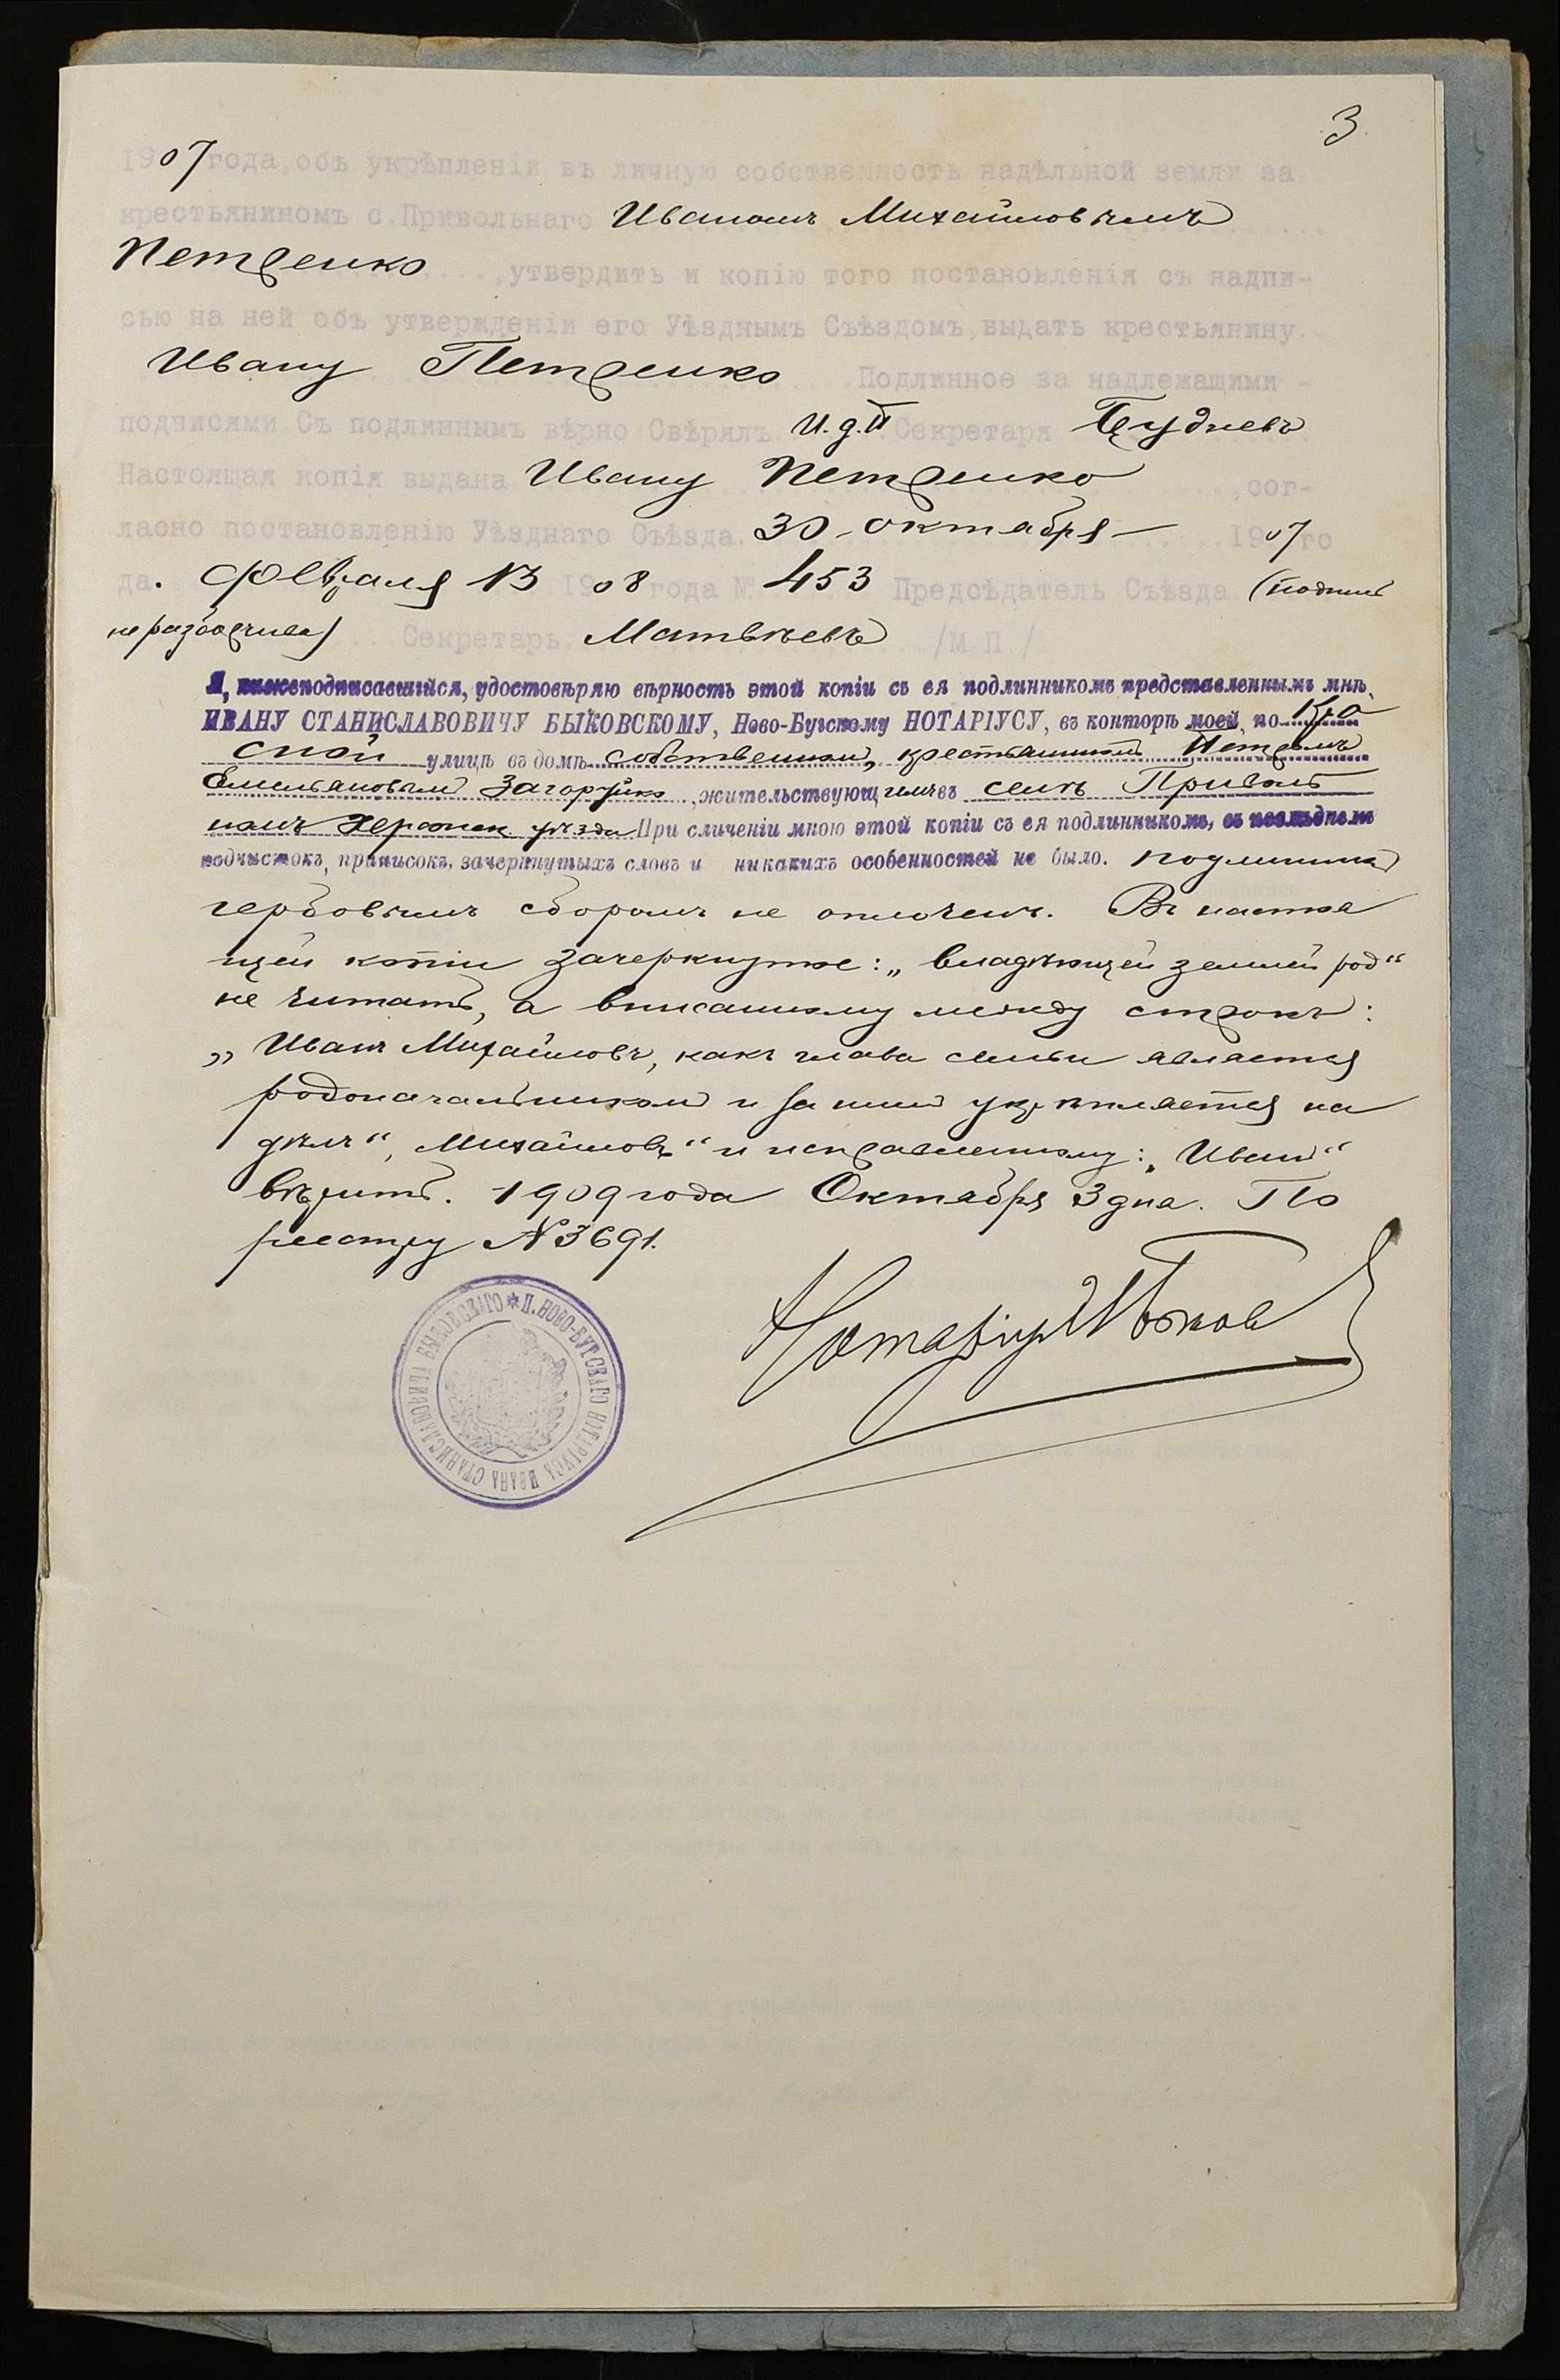 3.
1907 года, объ укрѣпленіи въ личную собственность надѣльной земли за
крестьяниномъ с. Привольнаго Иваномъ Михайловымъ
Петренко ....., утвердить и копію того постановленія съ надпи-
сью на ней объ утвержденіи его Уѣзднымъ Съѣздомъ, выдать крестьянину.
Ивану Петренко ..... Подлинное за надлежащими -
подписями Съ подлиннымъ вѣрно Свѣрялъ И.д. Секретаря
Настоящая копія выдана Ивану Петренко ....., сог-
ласно постановленію Уѣзднаго Съѣзда. 30 октября 1907 го
да. Февраля 13 1908 года № 453 Предсѣдатель Съѣзда (подпись
неразборчива) ... Секретарь Матвѣевъ /М П /
Я, нижеподписавшійся, удостовѣряю вѣрность этой копіи съ ея подлинникомъ представленнымъ мнѣ,
ИВАНУ СТАНИСЛАВОВИЧУ БЫКОВСКОМУ, Ново-Бугскому НОТАРІУСУ, въ конторѣ моей, по Кра
сной улицѣ въ домѣ собственномъ, крестьяниномъ Петромъ
Емельяновымъ Загоруйко, жительствующимъ въ селѣ Приволь
номъ Херсонск. уѣзда При сличеніи мною этой копіи съ ея подлинникомъ, въ послѣднемъ
подчистокъ, приписокъ, зачеркнутыхъ словъ и никакихъ особенностей не было. Подлинникъ
гербовымъ сборомъ не оплоченъ. Въ настоя
щей копіи зачеркнутое: „владѣющей землей род“
не читать, а вписанному между строкъ:
„Иванъ Михайловъ, какъ глава семьи является
родоначальникомъ и за нимъ укрѣпляется на
дѣлъ“, „Михайловъ“ и исправленному: „Иванъ“
вѣрить. 1909 года Октября 3 дня. По
реестру № 3691.
Нотаріусъ И Быков
* П. НОВО-БУГСКАГО НОТАРІУСА ИВАНА СТАНИСЛАВОВИЧА БЫКОВСКАГО